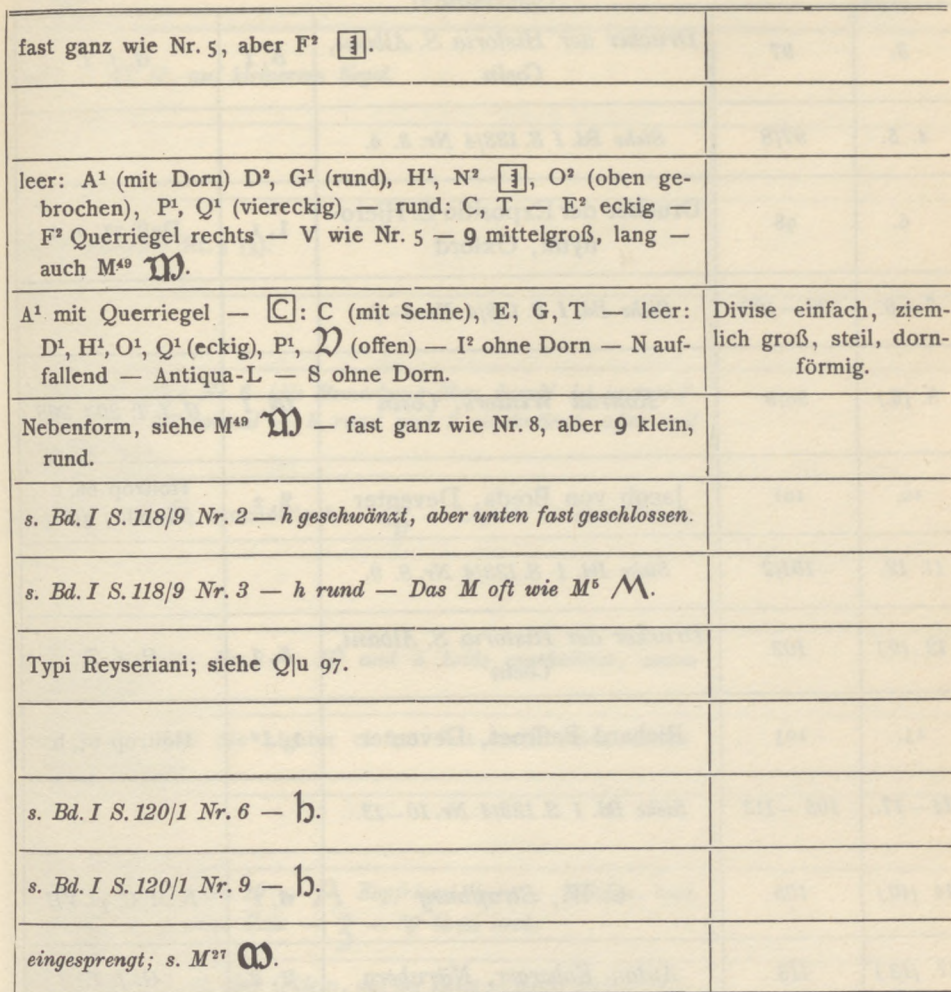 fast ganz wie Nr. 5, aber F²
leer: A¹ (mit Dorn) D², G¹ (rund), H¹, N², O² (oben ge-
brochen), P¹, Q¹ (viereckig) — rund: C, T — E² eckig
F² Querriegel rechts — V wie Nr. 5 — 9 mittelgroß, lang —
auch M⁴⁹ 𝔐.
A¹ mit Querriegel — C: C (mit Sehne), E, G, T — leer:
D¹, H¹, O¹, Q¹ (eckig), P¹, 𝔙 (offen) — I² ohne Dorn — N auf-
fallend — Antiqua-L — S ohne Dorn.
Divise einfach, ziem-
lich groß, steil, dorn-
förmig.
Nebenform, siehe M⁴⁹ 𝔐 — fast ganz wie Nr. 8, aber 9 klein,
rund.
s. Bd. I S. 118/9 Nr. 2 — h geschwänzt, aber unten fast geschlossen.
s. Bd. I S. 118/9 Nr. 3 — h rund — Das M oft wie M⁵ M.
Typi Reyseriani; siehe Q|u 97.
s. Bd. I S. 120/1 Nr. 6 — h.
s. Bd. I S. 120/1 Nr. 9 — h.
eingesprengt; s. M²⁷ 𝔐.